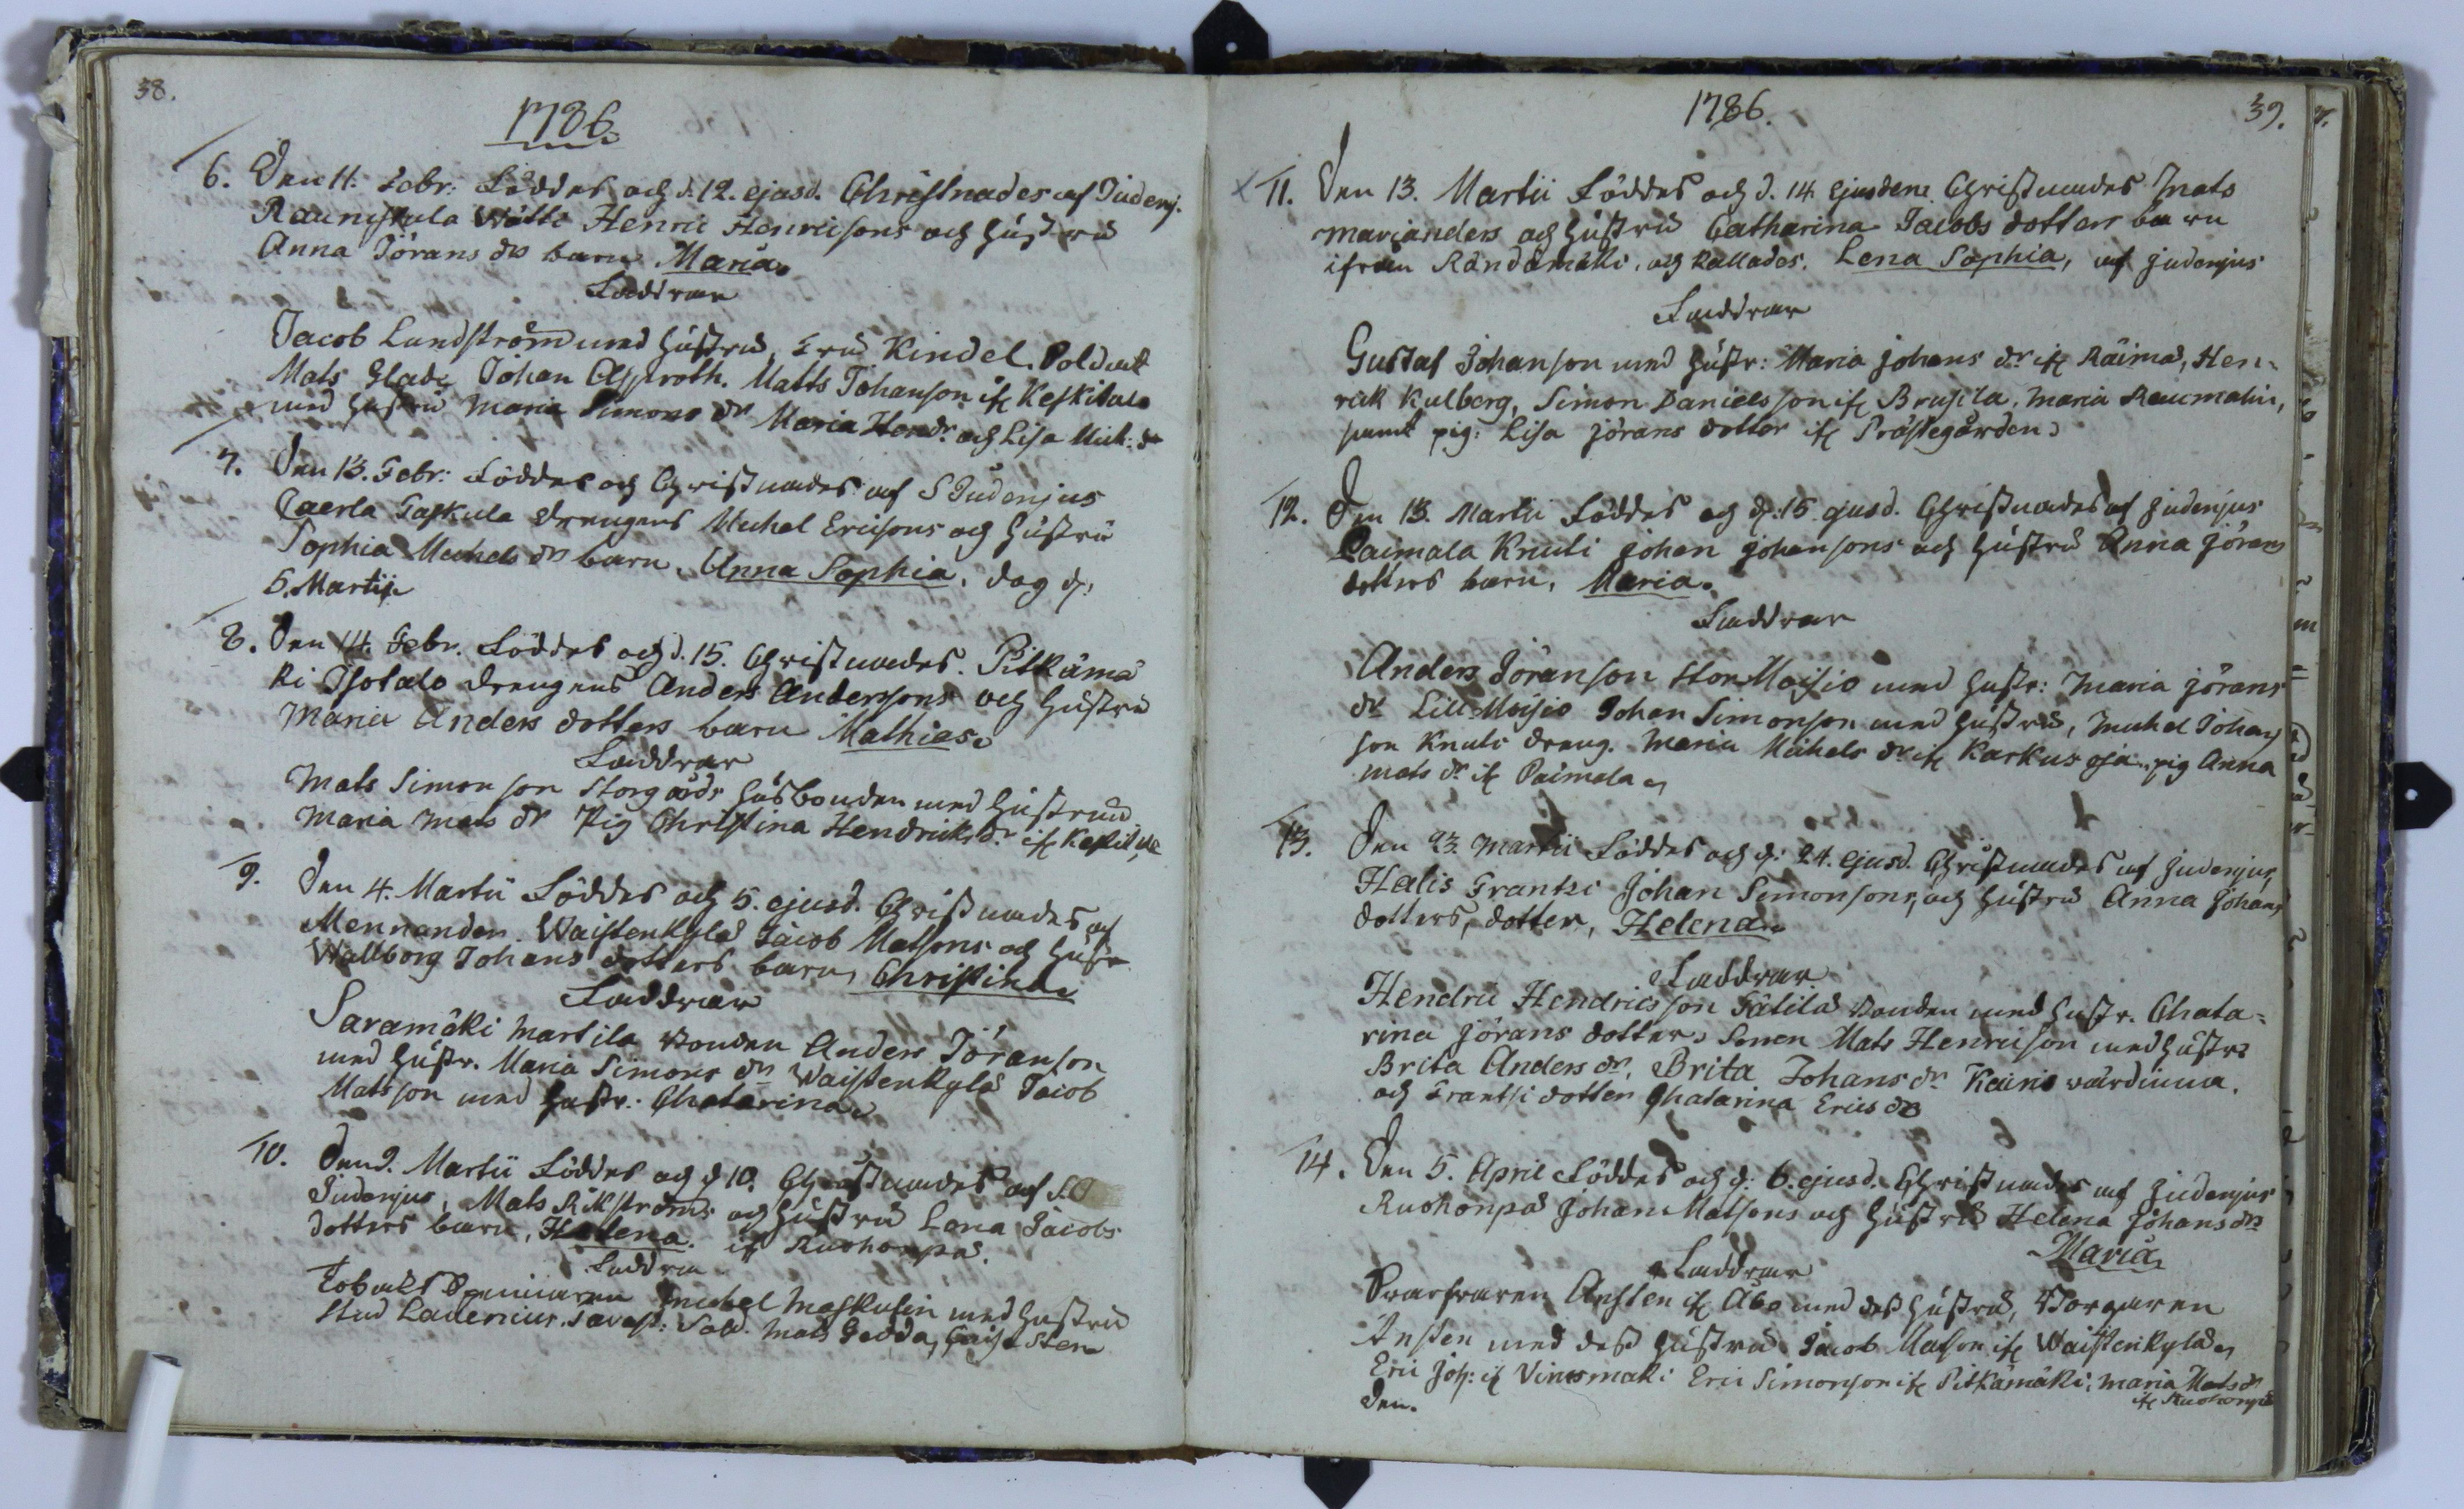 38.
1786.
6. Den 11. Febr: Föddes och d. 12. ejusd. Christnades af Judenj.
Raunistula Wätti Henric Henricsons och hustrus
Anna Jörans dr barn Maria.
Faddrar
Jacob Lundström med hustru, Fru Kindel. Soldat
Mats Glad, Johan Asproth. Matts Johanson ifr Keskitalo
med hustru Maria Simons dr Maria Hendr: och Lisa Mich: dr
7. Den 13. Febr: Föddes och Christnades af S Judenjus
Caerla Taskula drengens Michel Ericsons och hustru
Sophia Michels drs barn, Anna Sophia, dog d:
5. Martij.
8. Den 14. Febr. Föddes och d. 15. Christnades. Pitkämä
ki Isotalo drengens Anders Anderssons och hustru
Maria Anders dotters barn Mathies.
Faddrar
Mats Simonson Storgårds husbonden med hustrun
Maria Mats dr Pig Christina Hendricks dr ifr Keskit,
9. Den 4. Martii Föddes och 5. ejusd. Christnades af
Mennander. Waistenkylä Jacob Matsons och hustr
Wallborg Johans dotters barn, Christina.
Faddrar
Saramäki Martila bonden Anders Jöranson
med hustr. Maria Simons dr Waistenkylä Jacob
Matsson med hustr: Chatarina.
10. Den 9. Martii Föddes och d 10. Christnades af S.
Judenjus, Mats Rikströms och hustrus Lena Jacobs
dotters barn, Helena. ifr Ruohonpä.
Faddra
Tobaks Spinnaren Michel Maskulin med hustru
Stud Lauerius. Sold. Mats Gedda, Sten
1786.
39.
11. Den 13. Martii Föddes och d. 14. ejusdem Christnades Mats
Marianders och hustrus Catharina Jacobs dotters barn
ifrån Rändämäki, och kallades. Lena Sophia, af Judenjus
Faddrar
Gustaf Johanson med hustr: Maria Johans dr ifr Räimä, Hen-
rik Kulberg, Simon Danielsson ifr Brusila, Maria Raumalin,
samt pig: Lisa Jörans dotter ifr Prästegården
12. Den 13. Martii Föddes och d: 15. ejusd. Christnades af Judenjus
Paimala Knuti Johan Johansons och hustrus Anna Jörans
dotters barn, Maria.
Faddrar
Anders Jöranson Stor Moisio med hustr: Maria Jörans
dr Lill Moisio Johan Simonson med hustru, Michel Johan
son Knuts dreng. Maria Michels dr ifr Karkus oja pig Anna
Mats dr ifr Paimala
13. Den 23. Martii Föddes och d: 24. ejusd. Christnades af Judenjus,
Halis Frantsi Johan Simonsons, och hustrus Anna Johans
dotters, dotter, Helena.
Faddrar.
Hendric Hendricsson Tätilä bonden med hustr. Chata-
rina Jörans dotter, Sonen Mats Henricson med hustru
Brita Anders dr, Brita Johans dr Kairis värdinna.
och Frantsi dotter Chatarina Erics dr
14. Den 5. April Föddes och d: 6. ejusd. Christnades af Judenjus
Ruohonpä Johan Matsons och hustrus Helena Johans drs
Maria
Faddrar
Swarfvaren Ansten ifr Åbo med dess hustru, Borgaren
Ansten med dess hustru Jacob Matson ifr Waistenkylä
Eric Joh: ifr Vinsmäki Eric Simonson ifr Pitkämäki, Maria Mats dr
ifr Ruohonpä
den.